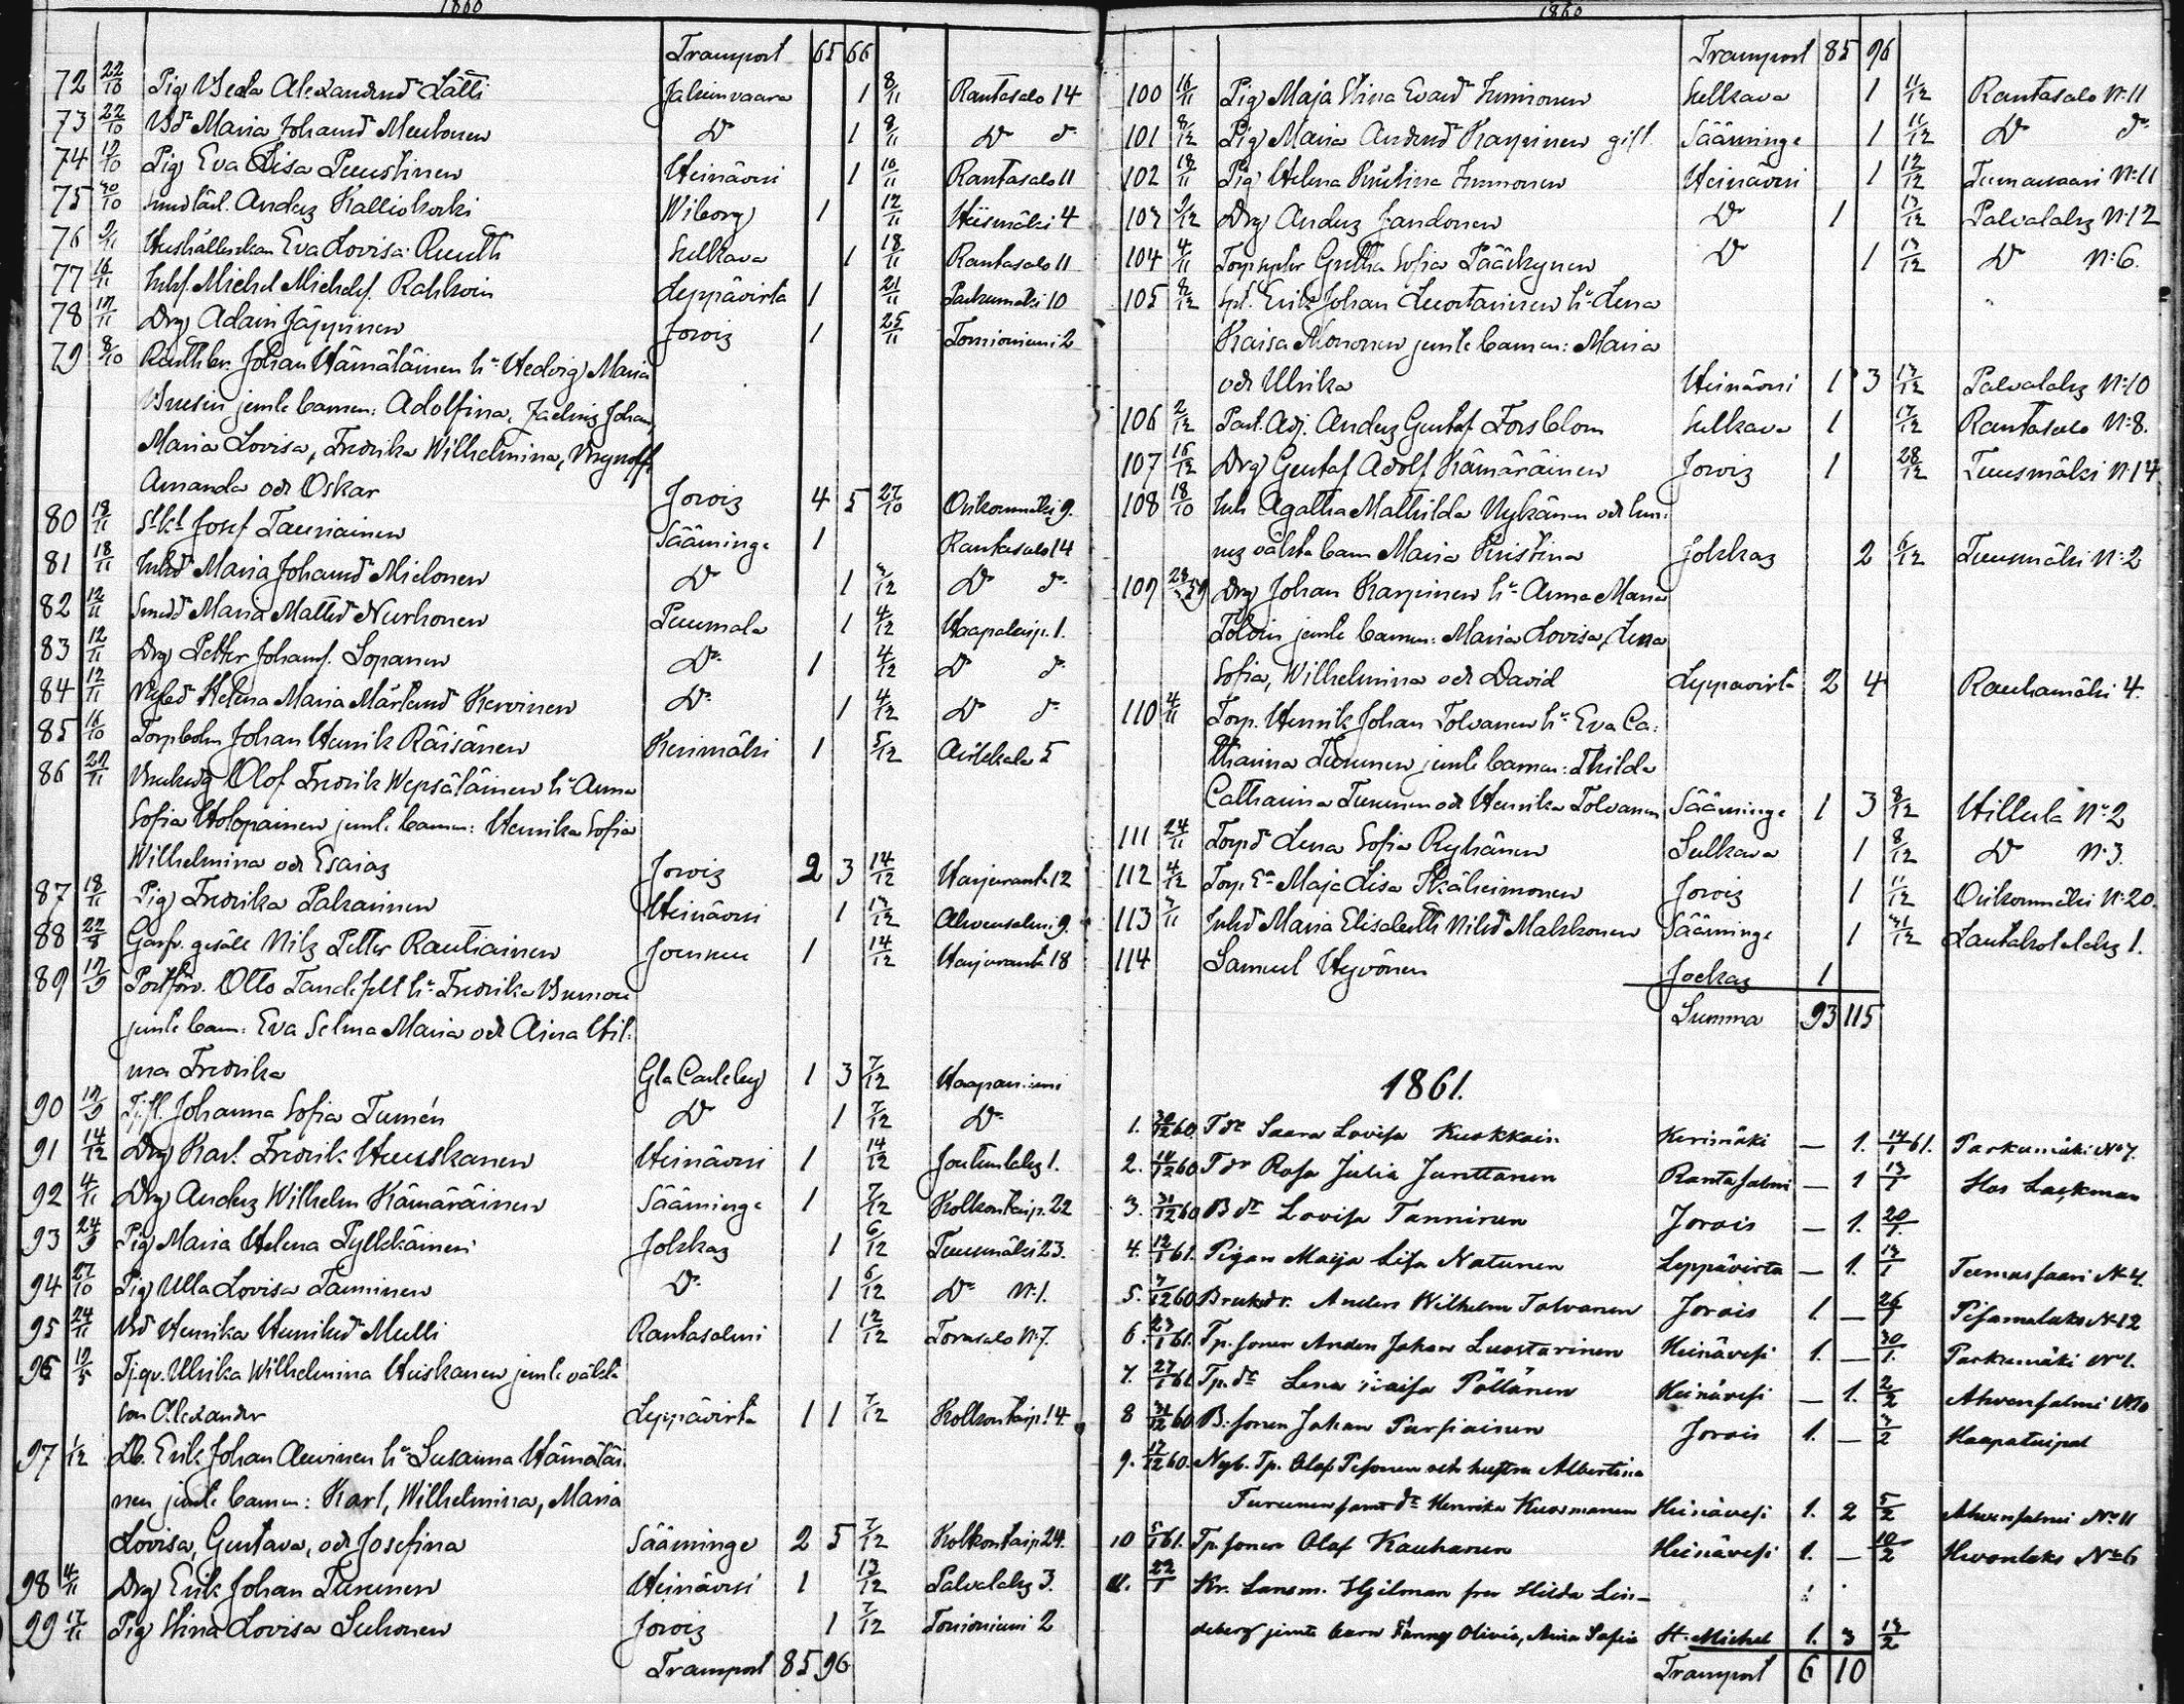 1860
Transport 65 66
72 22/10 Pig Beata Alexandersd Lätti Jakimvaara 1 8/11 Rantasalo 14
73 22/10 Bd Maria Johansd Meuhonen D 1 8/11 D d
74 19/10 Pig Eva Lisa Puustinen Heinävesi 1 10/11 Rantasalo 11
75 30/10 Smedlärl. Anders Kalliokoski Wiborg 1 12/11 Hiismäki 4
76 9/11 Hushållerskan Eva Lovisa Ruuth Sulkava 1 18/11 Rantasalo 11
77 16/11 Inhs. Michel Michels. Rahkoin Leppävirta 1 21/11 Parkumäki 10
78 19/11 Drg Adam Jäppinen Jorois 1 25/11 Tornioniemi 2
79 8/10 Johan Hämäläinen h: Hedvig Maria
jemte barnen: Adolfina, Johan,
Maria Lovisa, Fredrika Wilhelmina,
Amanda och Oskar Jorois 4 5 27/10 Oikonmäki 9.
80 18/11 Josef Tauriainen Sääminge 1 Rantasalo 14
81 18/11 Inhd Maria Johansd Mielonen D 1 3/12 D d
82 12/11 Smedd Maria Mattsd Nurhonen Puumala 1 4/12 Haapataip. 1.
83 12/11 Drg Petter Johans. Sopanen D 1 4/12 D d
84 12/11 Helena Maria Mårtensd Kervinen D 1 4/12 D d
85 16/10 Torpbolm Johan Henrik Räisänen Kerimäki 1 5/12 Asikkala 5
86 29/11 Olof Fredrik Wepsäläinen h: Anna
Sofia Holopainen jemte barnen: Henrika Sofia
Wilhelmina och Esaias Jorois 2 3 14/12 Harjuranta 12
87 18/11 Pig Fredrika Pakarinen Heinävesi 1 13/12 Ahvensalmi 9.
88 22/8 Garfv. gesäll Nils Petter Rautiainen Jounnu 1 14/12 Harjuranta 18
89 19/9 Postförv. Otto Tandefelt h: Fredrika
jemte barn: Eva Selma Maria och Aina Hil-
ma Fredrika Gla Carleby 1 3 7/12 Haapaniemi
90 19/9 Tj.fl. Johanna Sofia Tumén D 1 7/12 D
91 14/12 Drg Karl Fredrik Huuskanen Heinävesi 1 14/12 Joutenlaks 1.
92 4/11 Drg Anders Wilhelm Hämäräinen Sääminge 1 7/12 Kolkontaip. 22
93 24/9 Pig Maria Helena Pylkkäinen Jokkas 1 6/12 Tuusmäki 23.
94 27/10 Pig Ulla Lovisa Tanninen D 1 6/12 D N:1.
95 24/11 Henrika Henriksd Mulli Rantasalmi 1 12/12 Torasalo N:7.
96 19/5 Tj.qv. Ulrika Wilhelmina Huiskanen jemte oäkta
son Alexander Leppävirta 1 1 7/12 Kolkontaip. 14
97 1/12 Lb. Erik Johan Auvinen h: Susanna Hämäläi-
nen jemte barnen: Karl, Wilhelmina, Maria
Lovisa, Gustava, och Josefina Sääminge 2 5 7/12 Kolkontaip 24.
98 4/11 Drg Erik Johan Turunen Heinävesi 1 13/12 Palvalaks 3.
99 17/11 Pig Stina Lovisa Suhonen Jorois 1 7/12 Tornioniemi 2
Transport 85 96
1860
Transport 85 96
100 16/11 Pig Maja Stina Evasd Immonen Sulkava 1 11/12 Rantasalo N:11
101 8/12 Pig Maria Andersd Karpinen gift Sääminge 1 11/12 D d
102 18/11 Pig Helena Kristina Immonen Heinävesi 1 12/12 Tuemassaari N:11
103 9/12 Drg Anders Jandonen D 1 13/12 Palvalaks N:12
104 4/11 Gretha Sofia Pääskynen D 1 13/12 D N:6.
105 8/12 Spl. Erik Johan Luostarinen h: Lena
Kaisa Mononen jemte barnen: Maria
och Ulrika Heinävesi 1 3 13/12 Palvalaks N:10
106 2/12 Past. Adj. Anders Gustaf Forsblom Sulkava 1 17/12 Rantasalo N:8.
107 16/12 Drg Gustaf Adolf Hämäräinen Jorois 1 28/12 Tuusmäki N:14
108 18/10 Inh. Agatha Mathilda Nykänen och hen-
nes oäkta barn Maria Kristina Jokkas 2 6/12 Tuusmäki N:2
109 Drg Johan Karpinen h: Anna Maria
Toloin jemte barnen: Maria Lovisa, Lena
Sofia, Wilhelmina och David Leppävirta 2 4 Rauhamäki 4.
110 4/11 Torp. Henrik Johan Tolvanen h: Eva Ca-
tharina Turunen jemte barnen: Thilda
Catharina Turunen och Henrika Tolvanen Sääminge 1 3 8/12 Hiltula N:2
111 24/11 Torpd Lena Sofia Ryhänen Sulkava 1 8/12 D N:3.
112 4/12 Torp. E:a Maja Lisa Ikäheimonen Jorois 1 11/12 Oikonmäki N:20.
113 3/11 Inhd Maria Elisabeth Nilsd Makkonen Sääminge 1 31/12 Lautakotalaks 1.
114 Samuel Hyvönen Jockas 1
Summa 93 115
1861.
1. 30/12 60. T dr Saara Lovisa Kuokkain Kerimäki — 1. 14/1 61. Parkumäki No 7.
2. 14/12 60. T dr Rosa Julia Junttanen Rantasalmi — 1 13/1 Hos Lackman
3. 31/12 60 B dr Lovisa Tanninen Jorois — 1. 20/1.
4. 12/1 61. Pigan Maija Lisa Natunen Leppävirta — 1. 13/1 Teemassaari No 4.
5. 7/12 60 Bruksdr. Anders Wilhelm Tolvanen Jorois 1. — 26/1 Pisamalaks No 12
6. 23/1 61. Tp. sonen Anders Johan Luostarinen Heinävesi 1. — 30/1. Parkumäki No 1.
7. 27/1 61. Tp. dr Lena Kaisa Pöllänen Heinävesi — 1. 2/2 Ahvensalmi No 10
8 31/12 60. B. sonen Johan Pursiainen Jorois 1. — 3/2 Haapataipal
9. 17/12 60. Nyb. Tp. Olof Pesonen och hustru Albertina
Turunen samt dr Henrika Kuosmanen Heinävesi 1. 2 5/2 Ahvensalmi No 11
10 5/1 61. Tp. sonen Olof Kauhanen Heinävesi 1. — 10/2 Hevonlaks No 6
11. 22/1 Kr. Länsm. Hjelman fru Hilda Lin-
deberg jemte barn Fanny Olivia, Aina Sofia St. Michel 1. 3 13/2
Transport 6 10